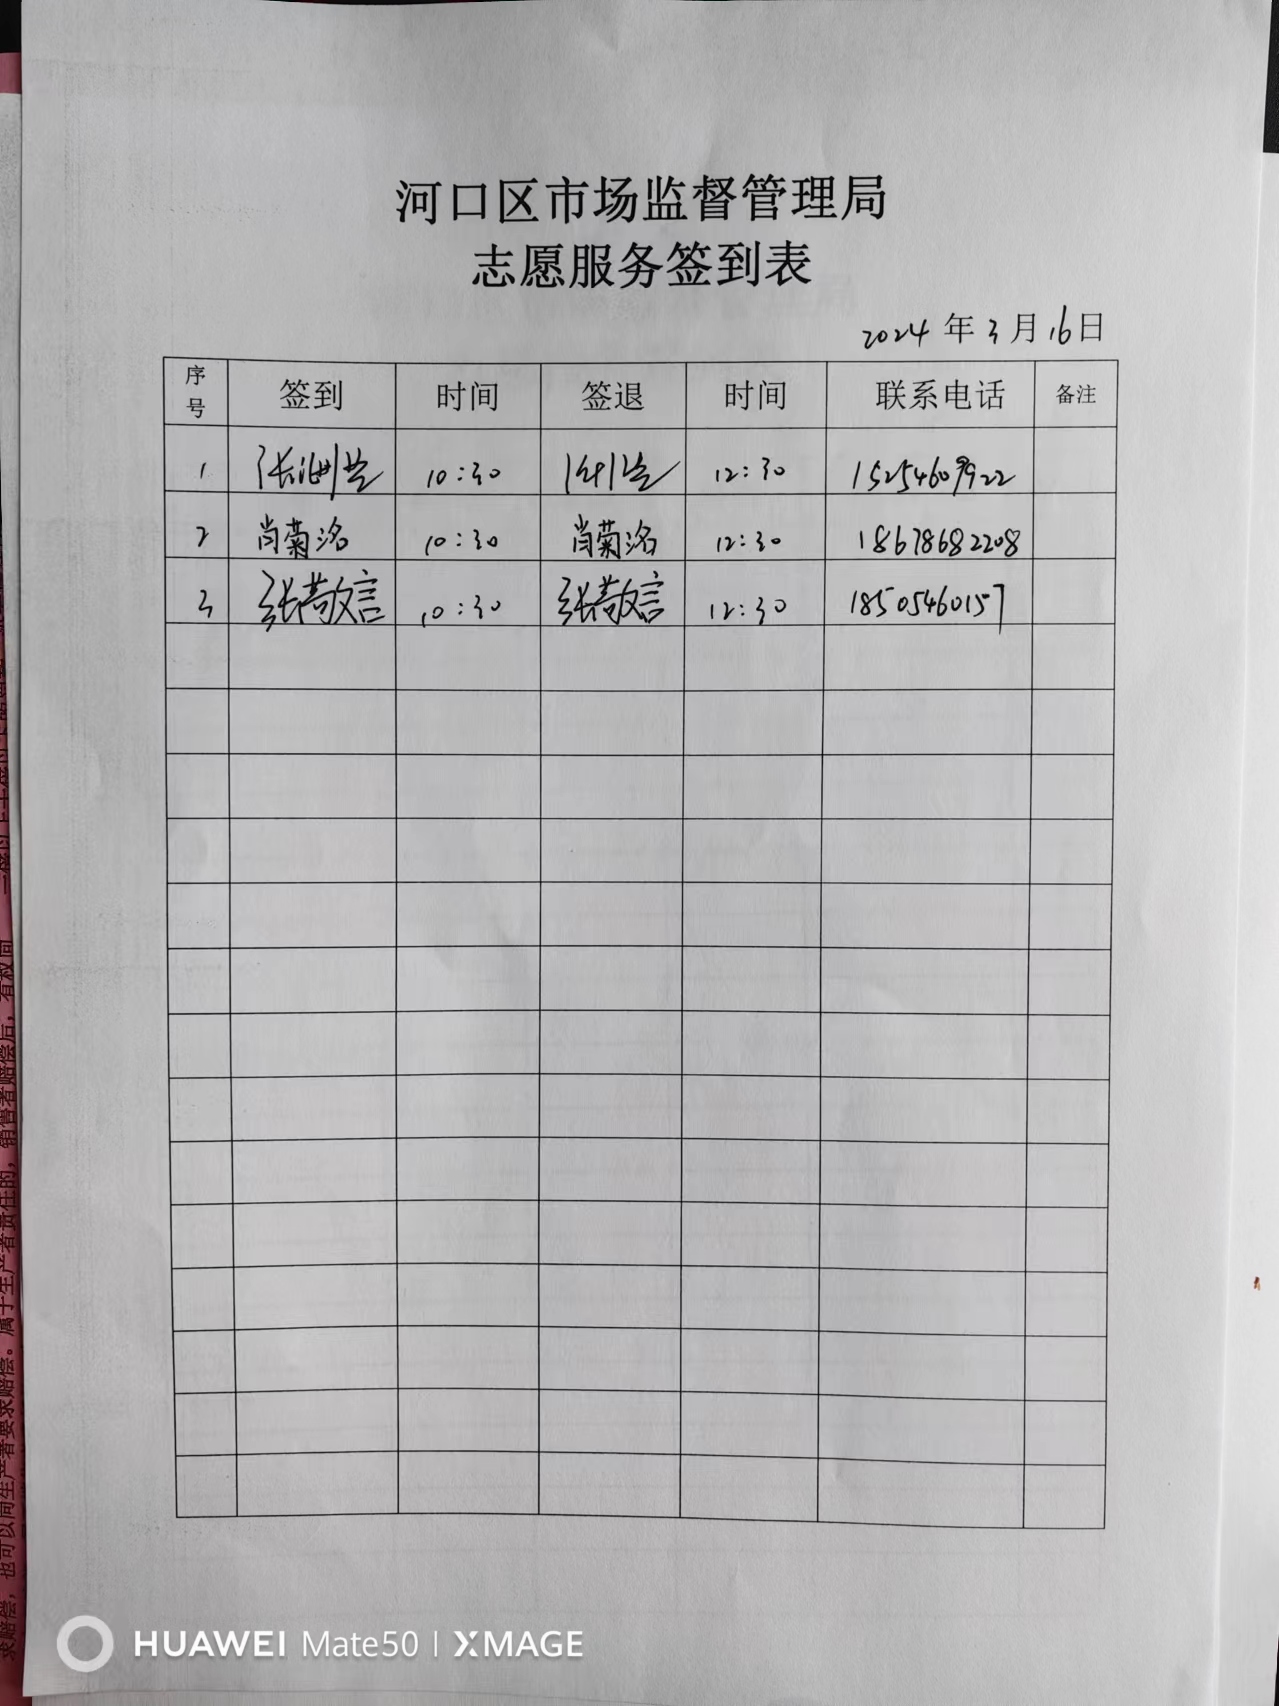 河口区市场监督管理局
志愿服务签到表
2024年3月16日
序号 签到 时间 签退 时间 联系电话 备注
1 10:30 12:30 15254609922
2 肖菊洛 10:30 肖菊洛 12:30 18678682208
3 张敬言 10:30 张敬言 12:30 18505460157
HUAWEI Mate50 | XMAGE